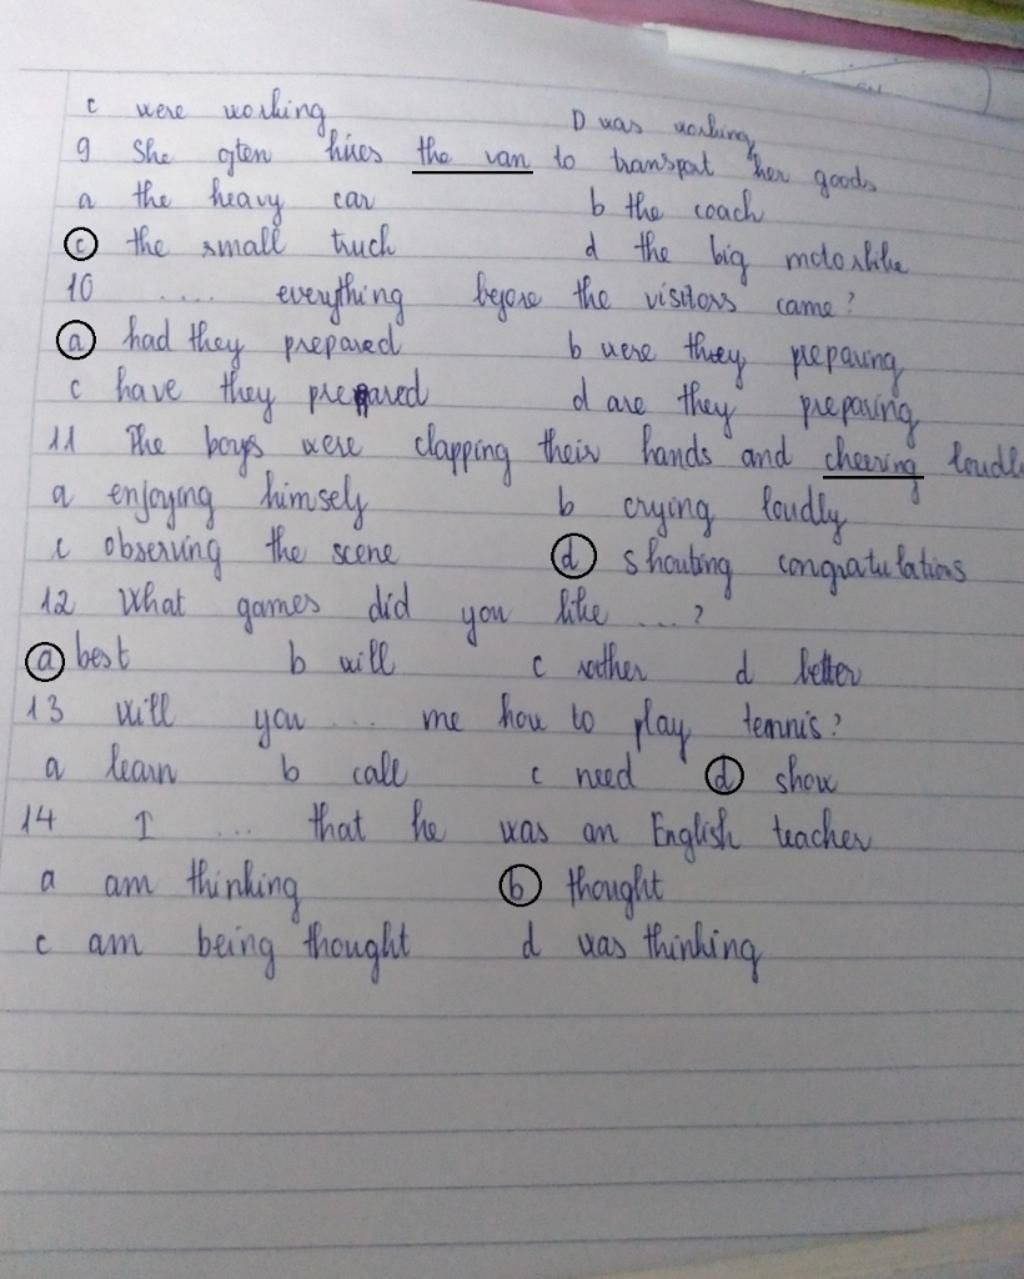 c were working D was working
9 She often hires the van to transport her goods
a the heavy car b the coach
c the small truck d the big motorbike
10 .... everything before the visitors came?
a had they prepared b were they preparing
c have they prepared d are they preparing
11 The boys were clapping their hands and cheering loudly
a enjoying himself b crying loudly
c observing the scene d shouting congratulations
12 What games did you like ....?
a best b will c rather d better
13 will you ... me how to play tennis?
a learn b call c need d show
14 I ... that he was an English teacher
a am thinking b thought
c am being thought d was thinking